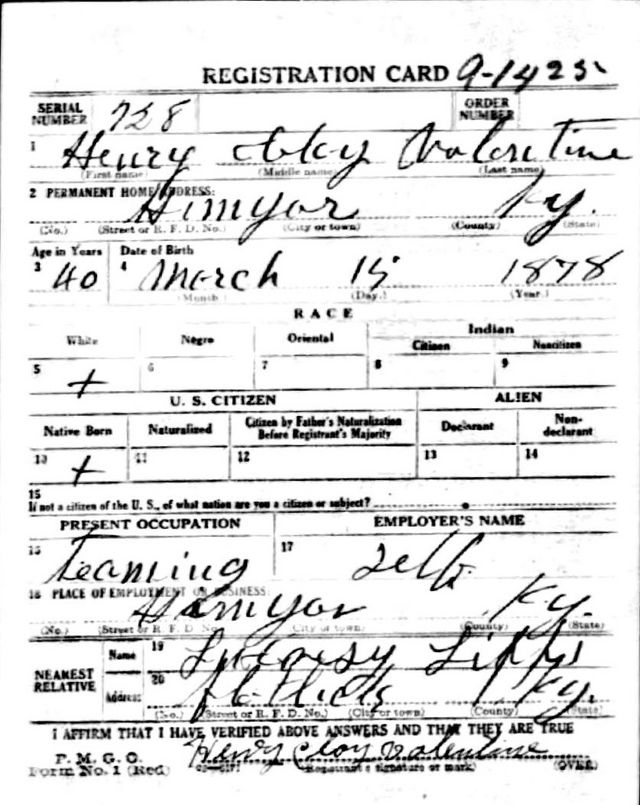 REGISTRATION CARD 9-1425
SERIAL NUMBER 728 ORDER NUMBER
1 Henry Clay Valentine
(First name) (Middle name) (Last name)
2 PERMANENT HOME ADDRESS:
Himyor Ky.
(No.) (Street or R. F. D. No.) (City or town) (County) (State)
Age in Years Date of Birth
3 40 4 March 15 1878
(Month) (Day) (Year)
RACE
White Negro Oriental Indian
Citizen Noncitizen
5 + 6 7 8 9
U. S. CITIZEN ALIEN
Native Born Naturalized Citizen by Father's Naturalization Before Registrant's Majority Declarant Non-declarant
10 + 11 12 13 14
15
If not a citizen of the U. S., of what nation are you a citizen or subject?
PRESENT OCCUPATION EMPLOYER'S NAME
16 teaming 17 self
18 PLACE OF EMPLOYMENT OR BUSINESS:
Himyor Ky.
(No.) (Street or R. F. D. No.) (City or town) (County) (State)
NEAREST RELATIVE Name 19
Address 20 Ky.
(No.) (Street or R. F. D. No.) (City or town) (County) (State)
I AFFIRM THAT I HAVE VERIFIED ABOVE ANSWERS AND THAT THEY ARE TRUE
P. M. G. O.
Form No. 1 (Red) Henry Clay Valentine
(Registrant's signature or mark) (OVER)